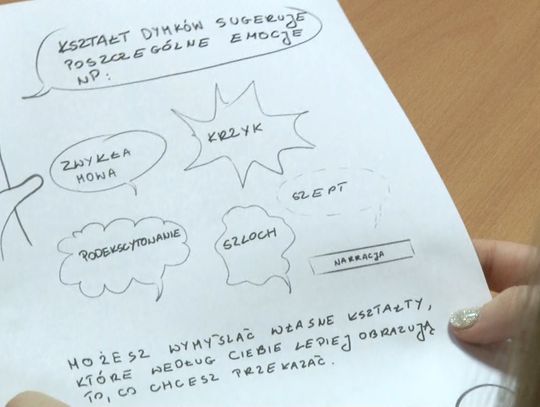 KSZTAŁT DYMKÓW SUGERUJE
POSZCZEGÓLNE EMOCJE
NP:
KRZYK
ZWYKŁA
MOWA
SZEPT
PODEKSCYTOWANIE
SZLOCH
NARRACJA
MOŻESZ WYMYŚLAĆ WŁASNE KSZTAŁTY,
KTÓRE WEDŁUG CIEBIE LEPIEJ OBRAZUJĄ
TO, CO CHCESZ PRZEKAZAĆ.